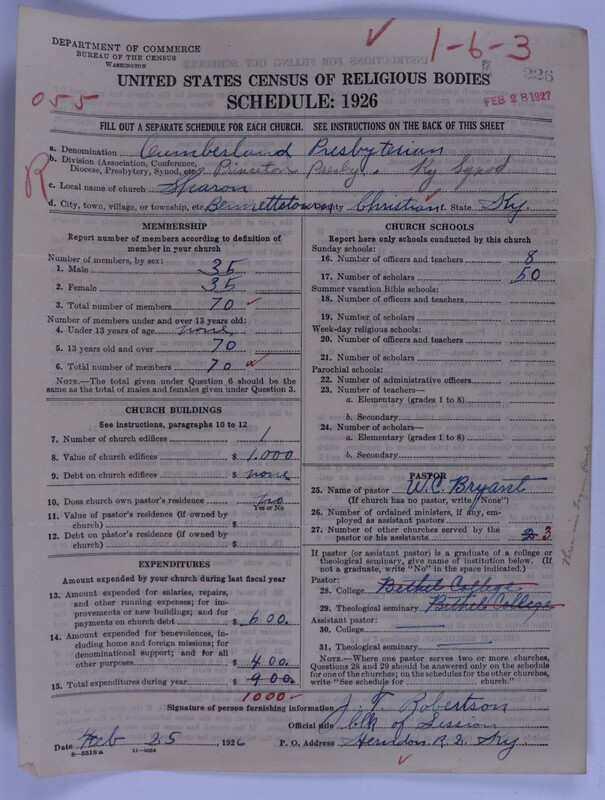 DEPARTMENT OF COMMERCE
BUREAU OF THE CENSUS
WASHINGTON
1-6-3
226
UNITED STATES CENSUS OF RELIGIOUS BODIES
SCHEDULE: 1926
055
FEB 28 1927
FILL OUT A SEPARATE SCHEDULE FOR EACH CHURCH. SEE INSTRUCTIONS ON THE BACK OF THIS SHEET
a. Denomination Cumberland Presbyterian
b. Division (Association, Conference, Diocese, Presbytery, Synod, etc.) Princeton Presby. Ky Synod
R
c. Local name of church Sharon
d. City, town, village, or township, etc. Bennettstown County Christian f. State Ky.
MEMBERSHIP
Report number of members according to definition of
member in your church
Number of members, by sex:
1. Male 35
2. Female 35
3. Total number of members 70
Number of members under and over 13 years old:
4. Under 13 years of age none
5. 13 years old and over 70
6. Total number of members 70
NOTE.—The total given under Question 6 should be
same as the total of males and females given under Question 3.
CHURCH BUILDINGS
See instructions, paragraphs 10 to 12
7. Number of church edifices 1
8. Value of church edifices $ 1.000
9. Debt on church edifices $ none
10. Does church own pastor's residence no
Yes or No
11. Value of pastor's residence (if owned by
church) $
12. Debt on pastor's residence (if owned by
church) $
EXPENDITURES
Amount expended by your church during last fiscal year
13. Amount expended for salaries, repairs,
and other running expenses; for im-
provements or new buildings; and for
payments on church debt $ 600.
14. Amount expended for benevolences,
including home and foreign missions; for
denominational support; and for all
other purposes $ 400.
15. Total expenditures during year $ 900.
1000
CHURCH SCHOOLS
Report here only schools conducted by this church
Sunday schools:
16. Number of officers and teachers 8
17. Number of scholars 50
Summer vacation Bible schools:
18. Number of officers and teachers
19. Number of scholars
Week-day religious schools:
20. Number of officers and teachers
21. Number of scholars
Parochial schools:
22. Number of administrative officers
23. Number of teachers—
a. Elementary (grades 1 to 8)
b. Secondary
24. Number of scholars—
a. Elementary (grades 1 to 8)
b. Secondary
PASTOR
25. Name of pastor W.C. Bryant
(If church has no pastor, write "None")
26. Number of ordained ministers, if any, em-
ployed as assistant pastors
27. Number of other churches served by the
pastor or his assistants 2 3
If pastor (or assistant pastor) is a graduate of a college or
theological seminary, give name of institution below. (If
not a graduate, write "No" in the space indicated.)
Pastor:
28. College Bethel College
29. Theological seminary Bethel College
Assistant pastor:
30. College
31. Theological seminary
NOTE.—Where one pastor serves two or more churches,
Questions 28 and 29 should be answered only on the schedule
for one of the churches; on the schedules for the other churches,
write "See schedule for church."
Signature of person furnishing information J. T. Robertson
Official title Clk of Session
Date Feb 25, 1926 P. O. Address Herndon R. 2. Ky
8—5518a 11—9034